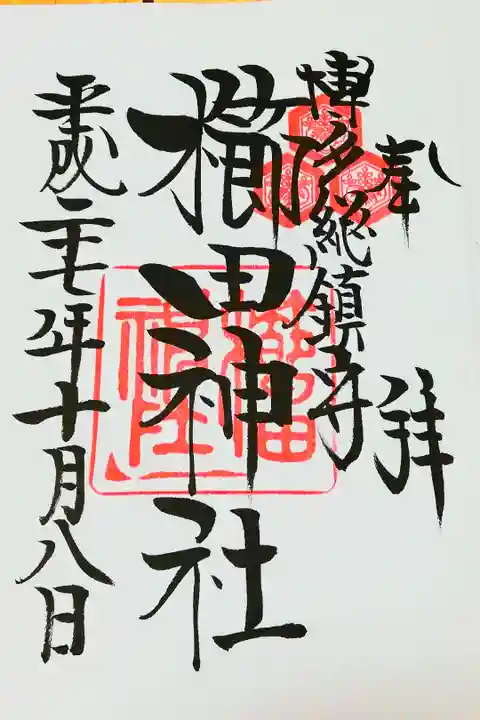 奉拝
博多総鎮守
櫛田神社
平成二十七年十月八日
櫛田神社